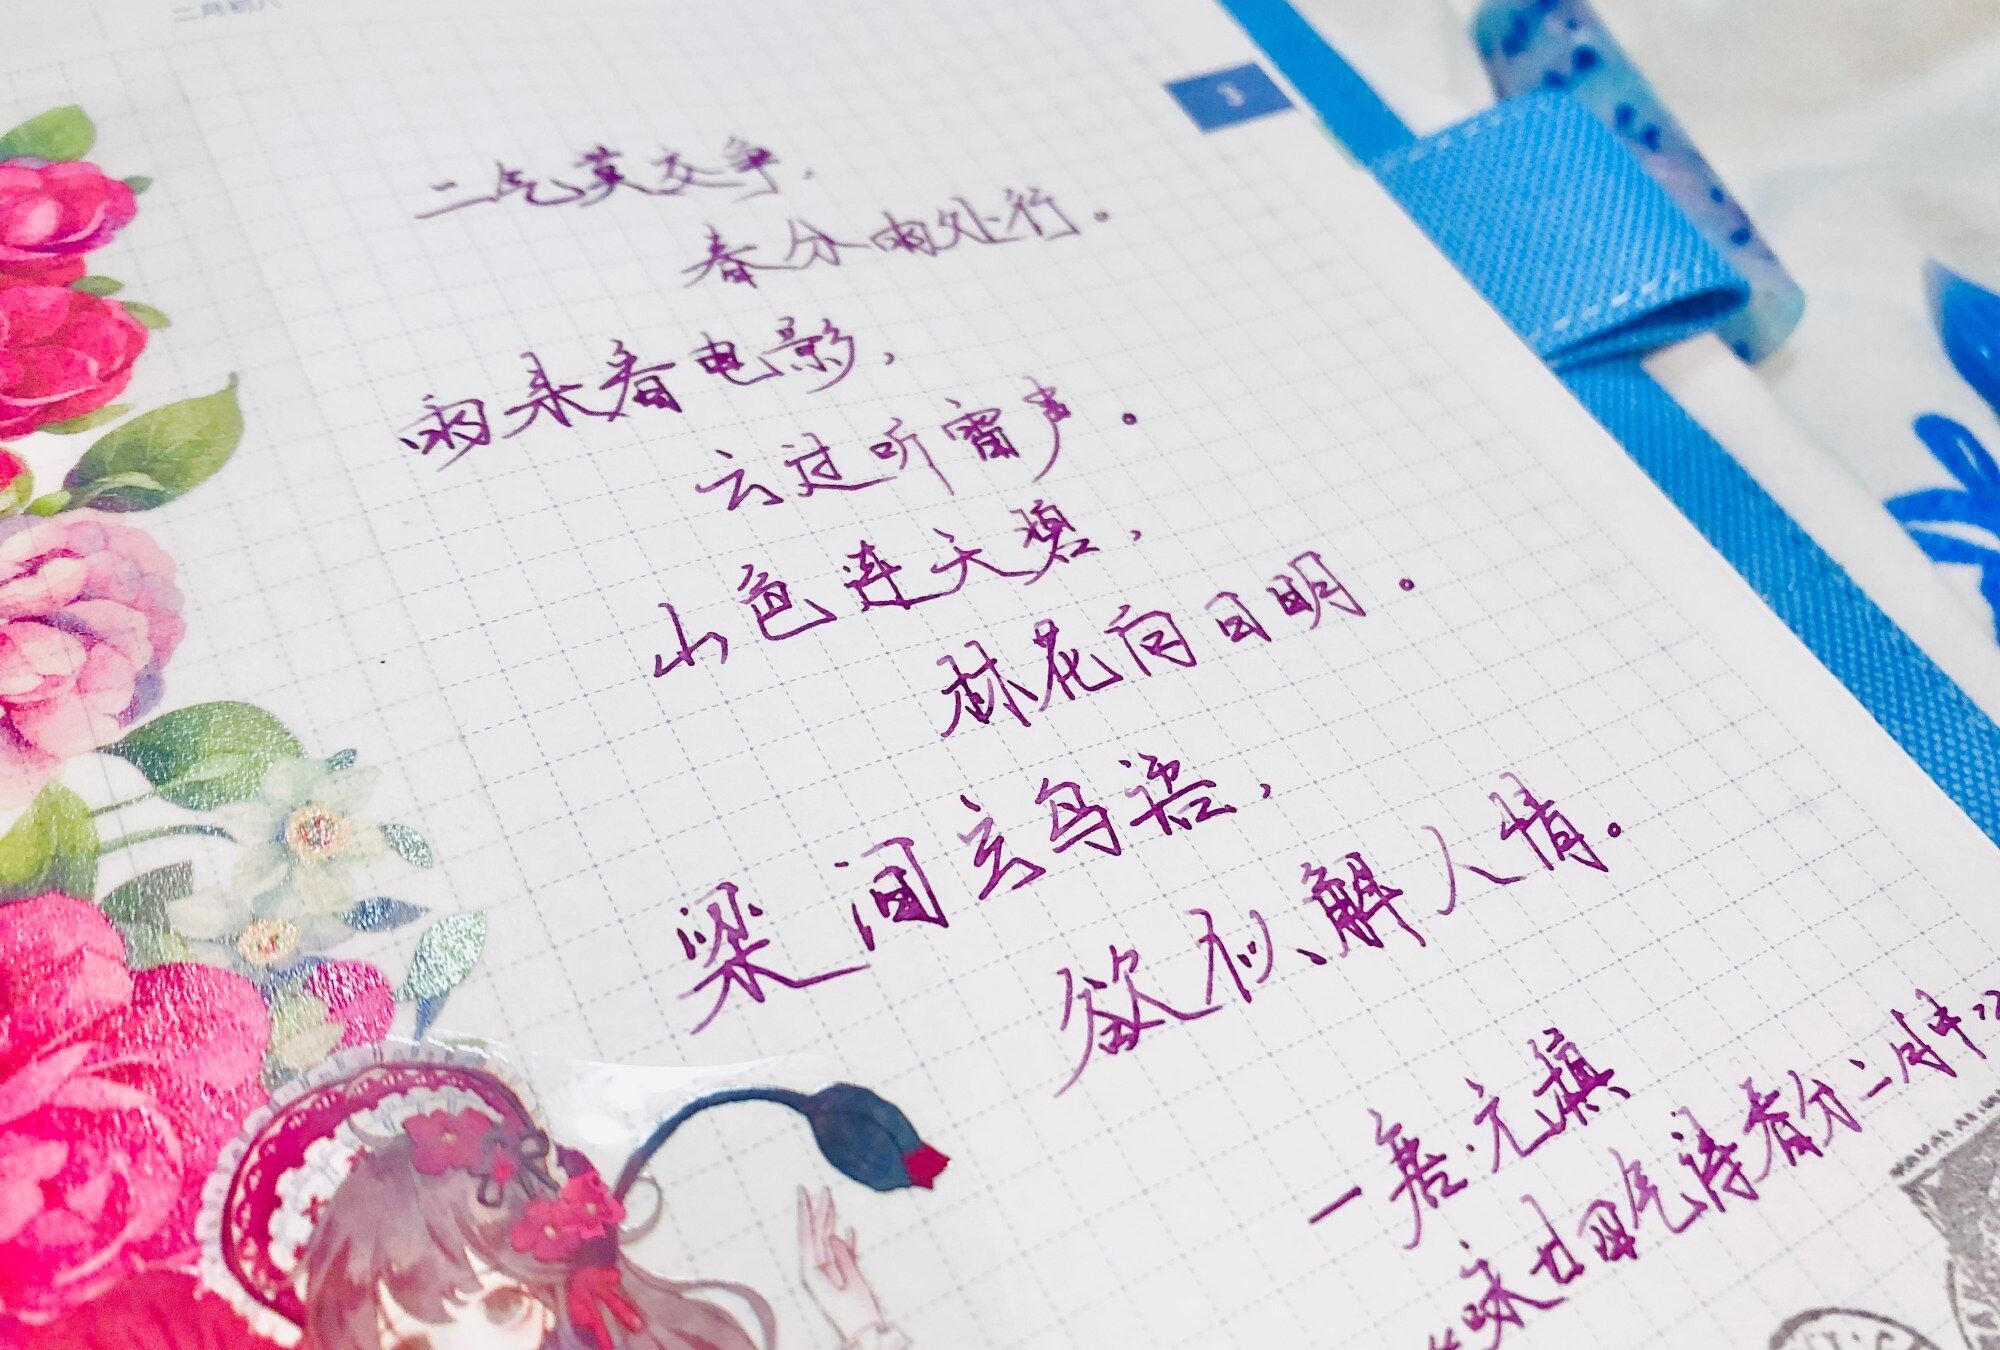 二月初八
3
二气莫交争，
春分雨处行。
雨来看电影，
云过听雷声。
山色连天碧，
林花向日明。
梁间玄鸟语，
欲似解人情。
一唐·元稹
《咏廿四气诗春分二月中》